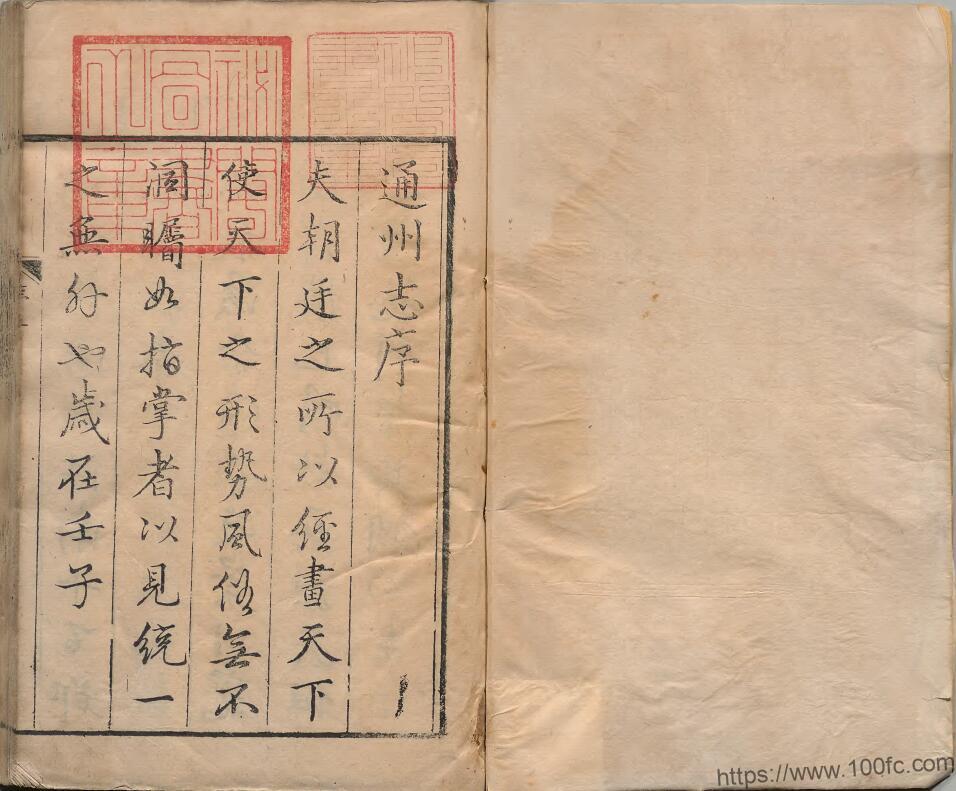 通州志序
夫朝廷之所以經畫天下
使天下之形勢風俗無不
洞矚如指掌者以見統一
之無外也歲在壬子
https://www.100fc.com